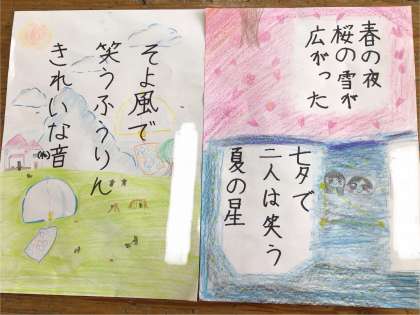 春の夜
桜の雪が
広がった
七夕で
二人は笑う
夏の星
そよ風で
笑うふうりん
きれいな音